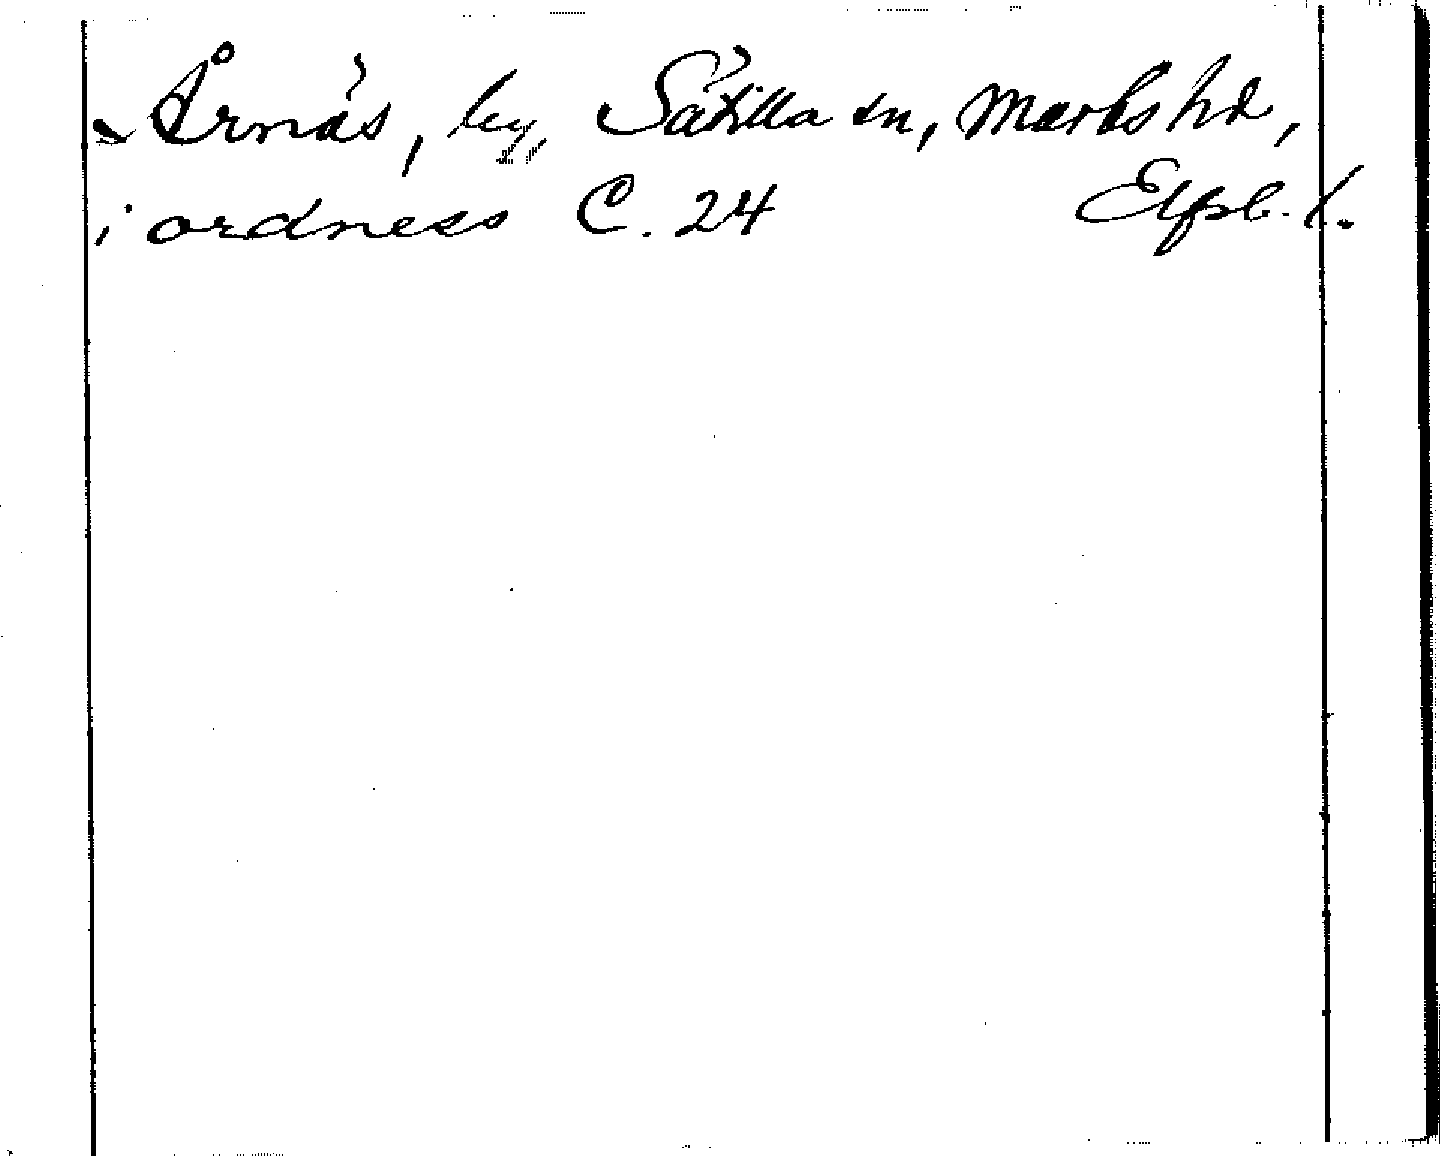 Årnäs, by, Sätilla sn, Marks hd,
i ordness C. 24 Elfsb. l.